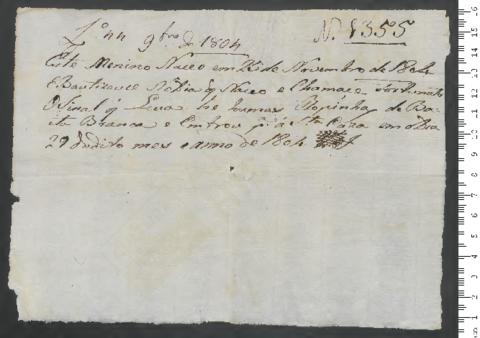 Lº 44 9brº de 1804 N. 1355
Este Menino Naceo em 25 de Novembro de 1804
e Bautizouce No Dia q Naceo e Chamace Fortunato
O Sinal q Leva he humas Roupinhas de Bai
ta Branca e Entrou p a Sta Caza em o Dia
29 do dito mes e anno de 1804